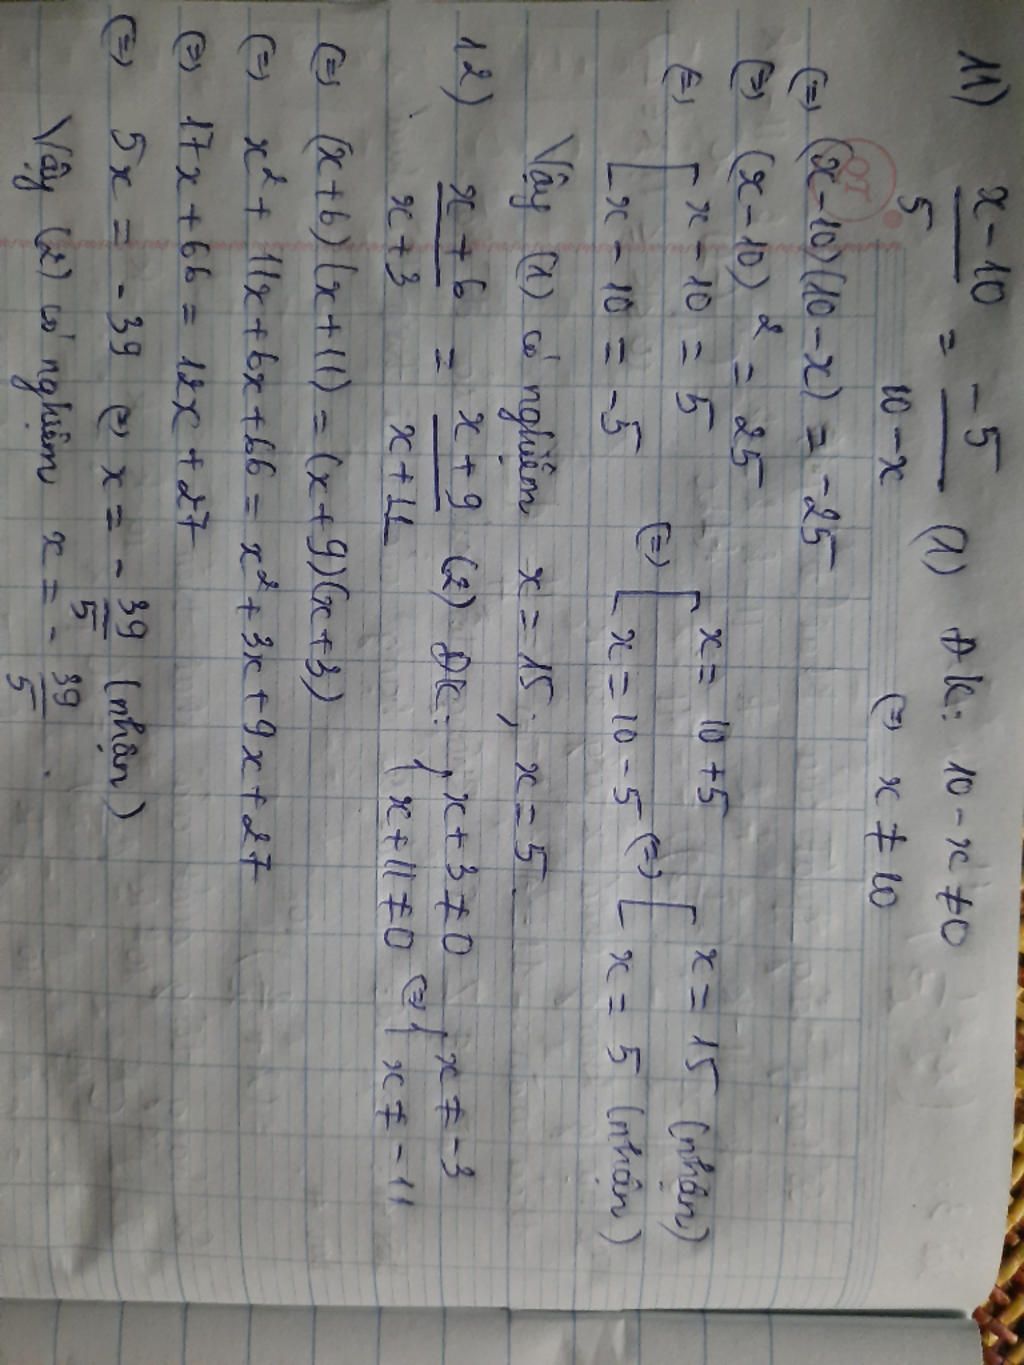 11) x-10/5 = -5/10-x (1) ĐK: 10-x ≠ 0
(=) x ≠ 10
(=) (x-10)(10-x) = -25
(=) (x-10)² = 25
(=) [ x-10 = 5 (=) [ x = 10+5 (=) [ x = 15 (nhận)
[ x-10 = -5 [ x = 10-5 [ x = 5 (nhận)
Vậy (1) có nghiệm x = 15; x = 5
12) x+6/x+3 = x+9/x+11 (2) ĐK: { x+3 ≠ 0 (=) { x ≠ -3
{ x+11 ≠ 0 { x ≠ -11
(=) (x+6)(x+11) = (x+9)(x+3)
(=) x² + 11x + 6x + 66 = x² + 3x + 9x + 27
(=) 17x + 66 = 12x + 27
(=) 5x = -39 (=) x = -39/5 (nhận)
Vậy (2) có nghiệm x = -39/5.